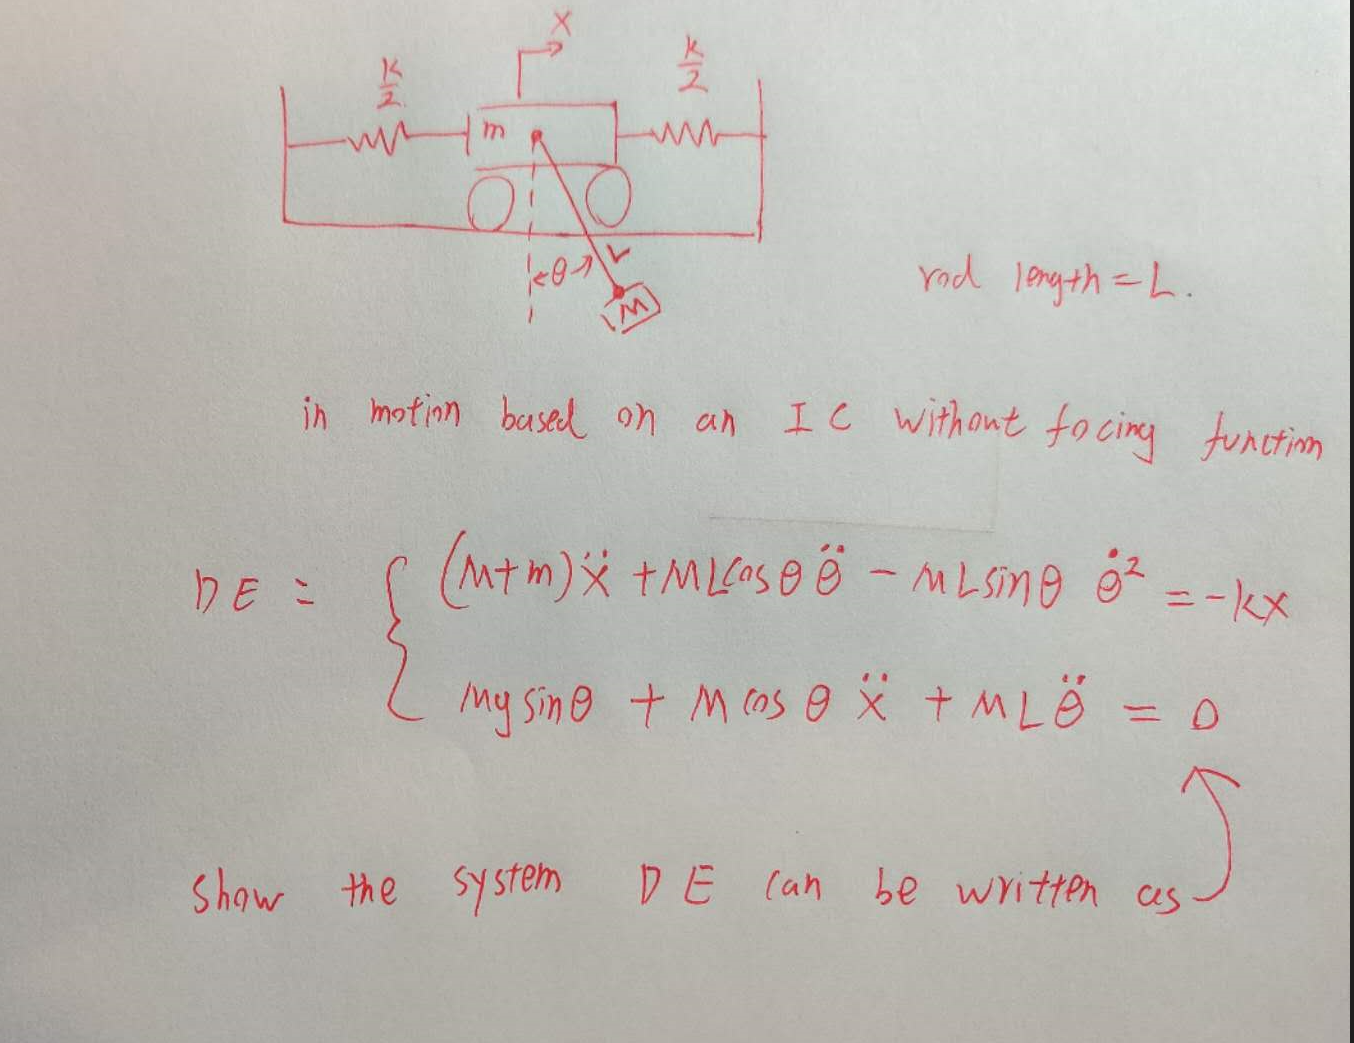 x
k/2
k/2
m
θ
L
M
rod length = L.
in motion based on an IC without focing function
DE = { (M+m)ẍ + MLcosθ θ̈ - MLsinθ θ̇² = -kx
Mg sinθ + M cosθ ẍ + MLθ̈ = 0
Show the system DE can be written as